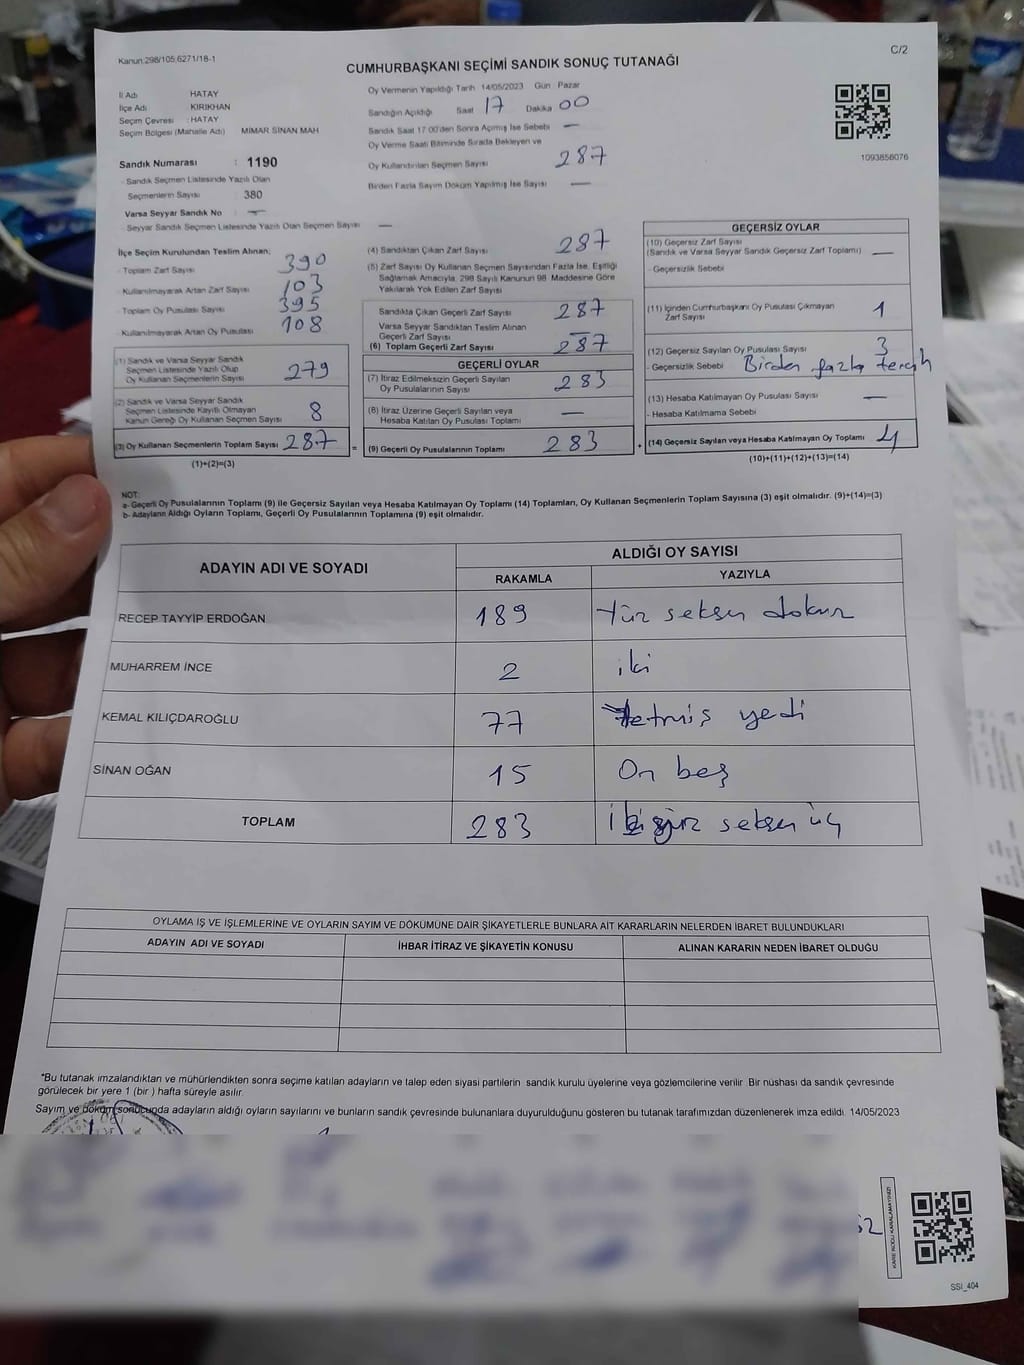 Kanun:298/105,6271/18-1
C/2
CUMHURBAŞKANI SEÇİMİ SANDIK SONUÇ TUTANAĞI
İl Adı HATAY
İlçe Adı KIRIKHAN
Seçim Çevresi : HATAY
Seçim Bölgesi (Mahalle Adı) MİMAR SİNAN MAH
Sandık Numarası : 1190
- Sandık Seçmen Listesinde Yazılı Olan
Seçmenlerin Sayısı : 380
Varsa Seyyar Sandık No : —
- Seyyar Sandık Seçmen Listesinde Yazılı Olan Seçmen Sayısı —
Oy Vermenin Yapıldığı Tarih 14/05/2023 Gün Pazar
Sandığın Açıldığı Saat 17 Dakika 00
Sandık Saat 17:00'den Sonra Açmış İse Sebebi —
Oy Verme Saati Bitiminde Sırada Bekleyen ve
Oy Kullandırılan Seçmen Sayısı 287
Birden Fazla Sayım Döküm Yapılmış İse Sayısı —
1093856076
İlçe Seçim Kurulundan Teslim Alınan;
- Toplam Zarf Sayısı 390
- Kullanılmayarak Artan Zarf Sayısı 103
- Toplam Oy Pusulası Sayısı 395
- Kullanılmayarak Artan Oy Pusulası 108
(1) Sandık ve Varsa Seyyar Sandık
Seçmen Listesinde Yazılı Olup
Oy Kullanan Seçmenlerin Sayısı 279
(2) Sandık ve Varsa Seyyar Sandık
Seçmen Listesinde Kayıtlı Olmayan
Kanun Gereği Oy Kullanan Seçmen Sayısı 8
(3) Oy Kullanan Seçmenlerin Toplam Sayısı 287
(1)+(2)=(3)
(4) Sandıktan Çıkan Zarf Sayısı 287
(5) Zarf Sayısı Oy Kullanan Seçmen Sayısından Fazla İse, Eşitliği
Sağlamak Amacıyla; 298 Sayılı Kanunun 98. Maddesine Göre
Yakılarak Yok Edilen Zarf Sayısı
Sandıkta Çıkan Geçerli Zarf Sayısı 287
Varsa Seyyar Sandıktan Teslim Alınan
Geçerli Zarf Sayısı —
(6) Toplam Geçerli Zarf Sayısı 287
GEÇERLİ OYLAR
(7) İtiraz Edilmeksizin Geçerli Sayılan
Oy Pusulalarının Sayısı 283
(8) İtiraz Üzerine Geçerli Sayılan veya
Hesaba Katılan Oy Pusulası Toplamı —
= (9) Geçerli Oy Pusulalarının Toplamı 283
GEÇERSİZ OYLAR
(10) Geçersiz Zarf Sayısı
(Sandık ve Varsa Seyyar Sandık Geçersiz Zarf Toplamı) —
- Geçersizlik Sebebi
(11) İçinden Cumhurbaşkanı Oy Pusulası Çıkmayan
Zarf Sayısı 1
(12) Geçersiz Sayılan Oy Pusulası Sayısı 3
- Geçersizlik Sebebi Birden fazla tercih
(13) Hesaba Katılmayan Oy Pusulası Sayısı —
- Hesaba Katılmama Sebebi
+ (14) Geçersiz Sayılan veya Hesaba Katılmayan Oy Toplamı 4
(10)+(11)+(12)+(13)=(14)
NOT:
a- Geçerli Oy Pusulalarının Toplamı (9) ile Geçersiz Sayılan veya Hesaba Katılmayan Oy Toplamı (14) Toplamları, Oy Kullanan Seçmenlerin Toplam Sayısına (3) eşit olmalıdır. (9)+(14)=(3)
b- Adayların Aldığı Oyların Toplamı, Geçerli Oy Pusulalarının Toplamına (9) eşit olmalıdır.
ADAYIN ADI VE SOYADI ALDIĞI OY SAYISI
RAKAMLA YAZIYLA
RECEP TAYYİP ERDOĞAN 189 Yüz seksen dokuz
MUHARREM İNCE 2 iki
KEMAL KILIÇDAROĞLU 77 Yetmiş yedi
SİNAN OĞAN 15 On beş
TOPLAM 283 İkiyüz seksen üç
OYLAMA İŞ VE İŞLEMLERİNE VE OYLARIN SAYIM VE DÖKÜMÜNE DAİR ŞİKAYETLERLE BUNLARA AİT KARARLARIN NELERDEN İBARET BULUNDUKLARI
ADAYIN ADI VE SOYADI İHBAR İTİRAZ VE ŞİKAYETİN KONUSU ALINAN KARARIN NEDEN İBARET OLDUĞU
*Bu tutanak imzalandıktan ve mühürlendikten sonra seçime katılan adayların ve talep eden siyasi partilerin sandık kurulu üyelerine veya gözlemcilerine verilir. Bir nüshası da sandık çevresinde
görülecek bir yere 1 (bir) hafta süreyle asılır.
Sayım ve döküm sonucunda adayların aldığı oyların sayılarını ve bunların sandık çevresinde bulunanlara duyurulduğunu gösteren bu tutanak tarafımızdan düzenlenerek imza edildi. 14/05/2023
KARE KODU KARALAMAYINIZ!
SSI_404